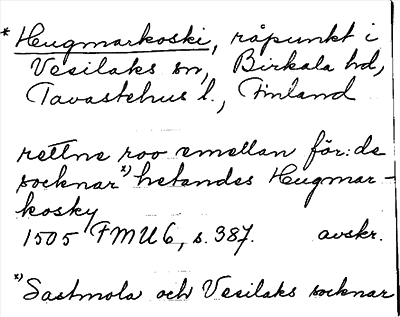 * Hugmarkoski, råpunkt i
Vesilaks sn, Birkala hd,
Tavastehus l., Finland
rettne roo emellan för:de
socknar x) hetandes Hugmar-
kosky
1505 FMU 6, s. 387. avskr.
x) Sastmola och Vesilaks socknar